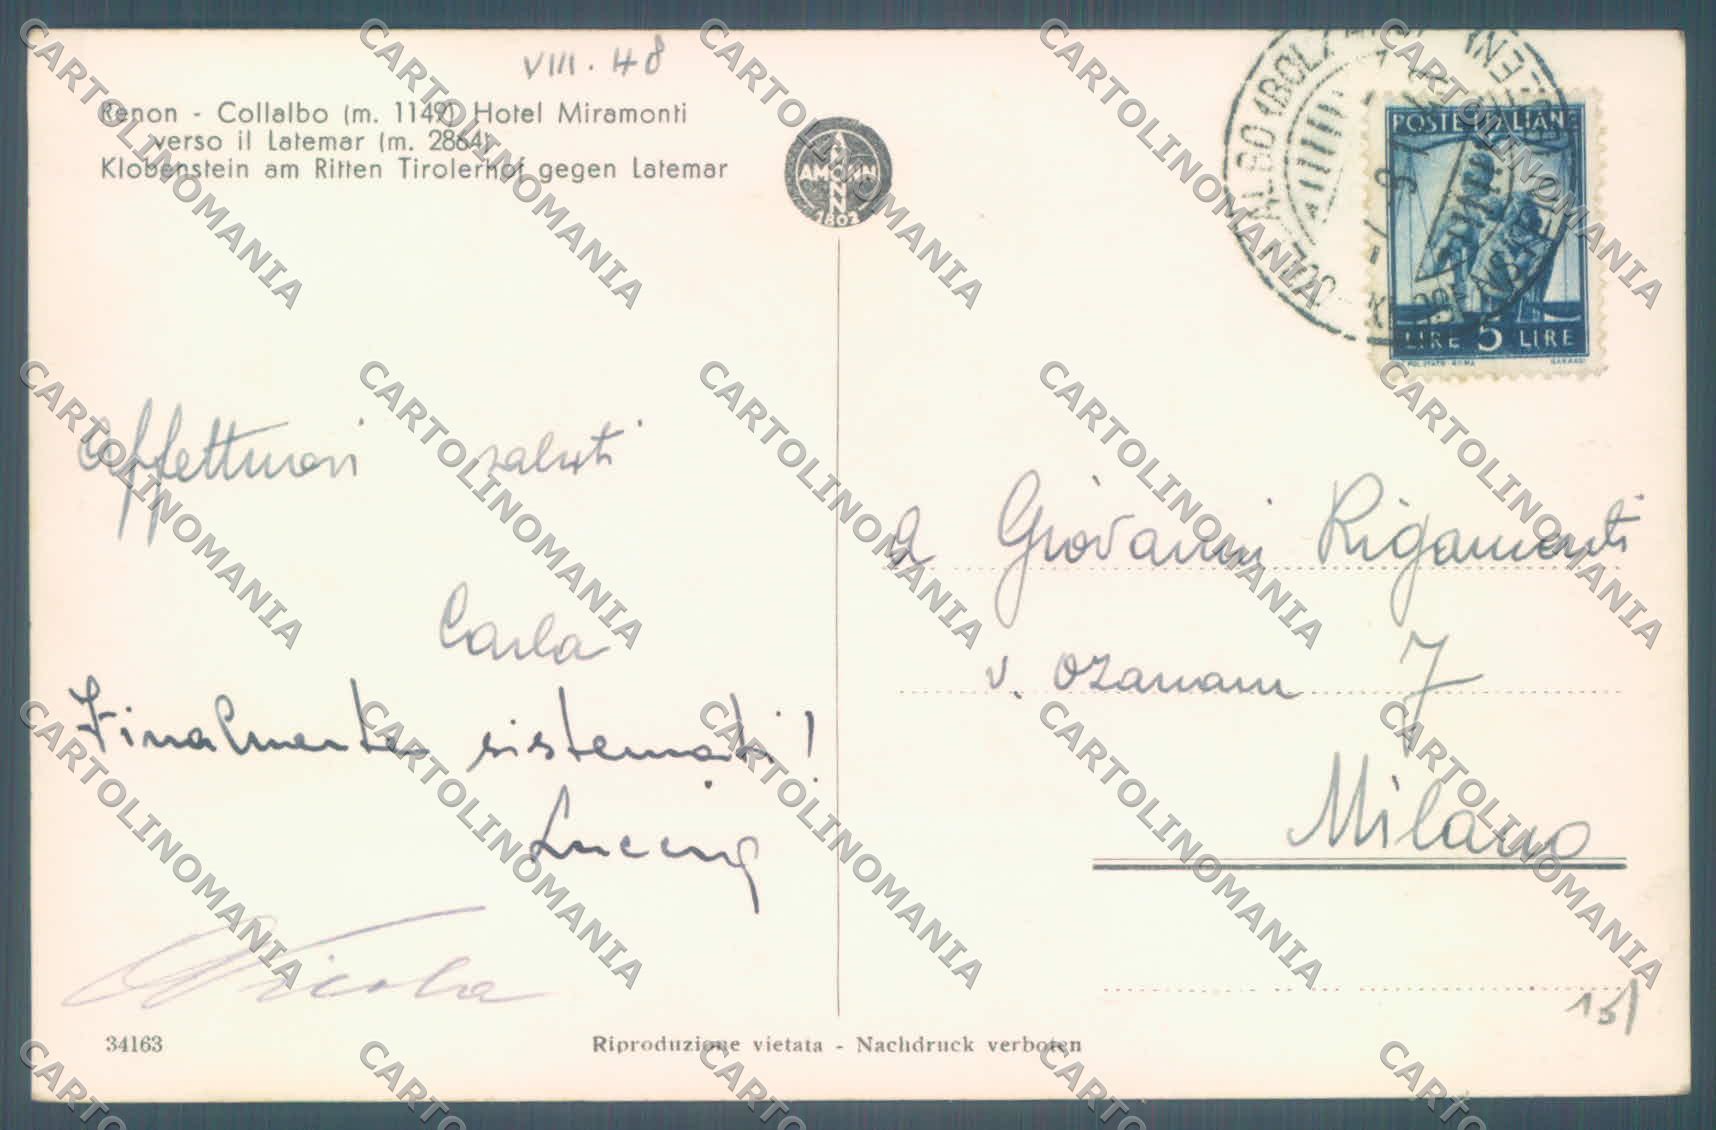 VIII. 48
Renon - Collalbo (m. 1149) Hotel Miramonti
verso il Latemar (m. 2864)
Klobenstein am Ritten Tirolerhof gegen Latemar
AMONN
1802
POSTE ITALIANE
LIRE 5 LIRE
affettuosi saluti
Carla
Finalmente sistemati!
Nicola
a Giovanni Rigamonti
v. Ozanam 7
Milano
34163
Riproduzione vietata - Nachdruck verboten
CARTOLINOMANIA